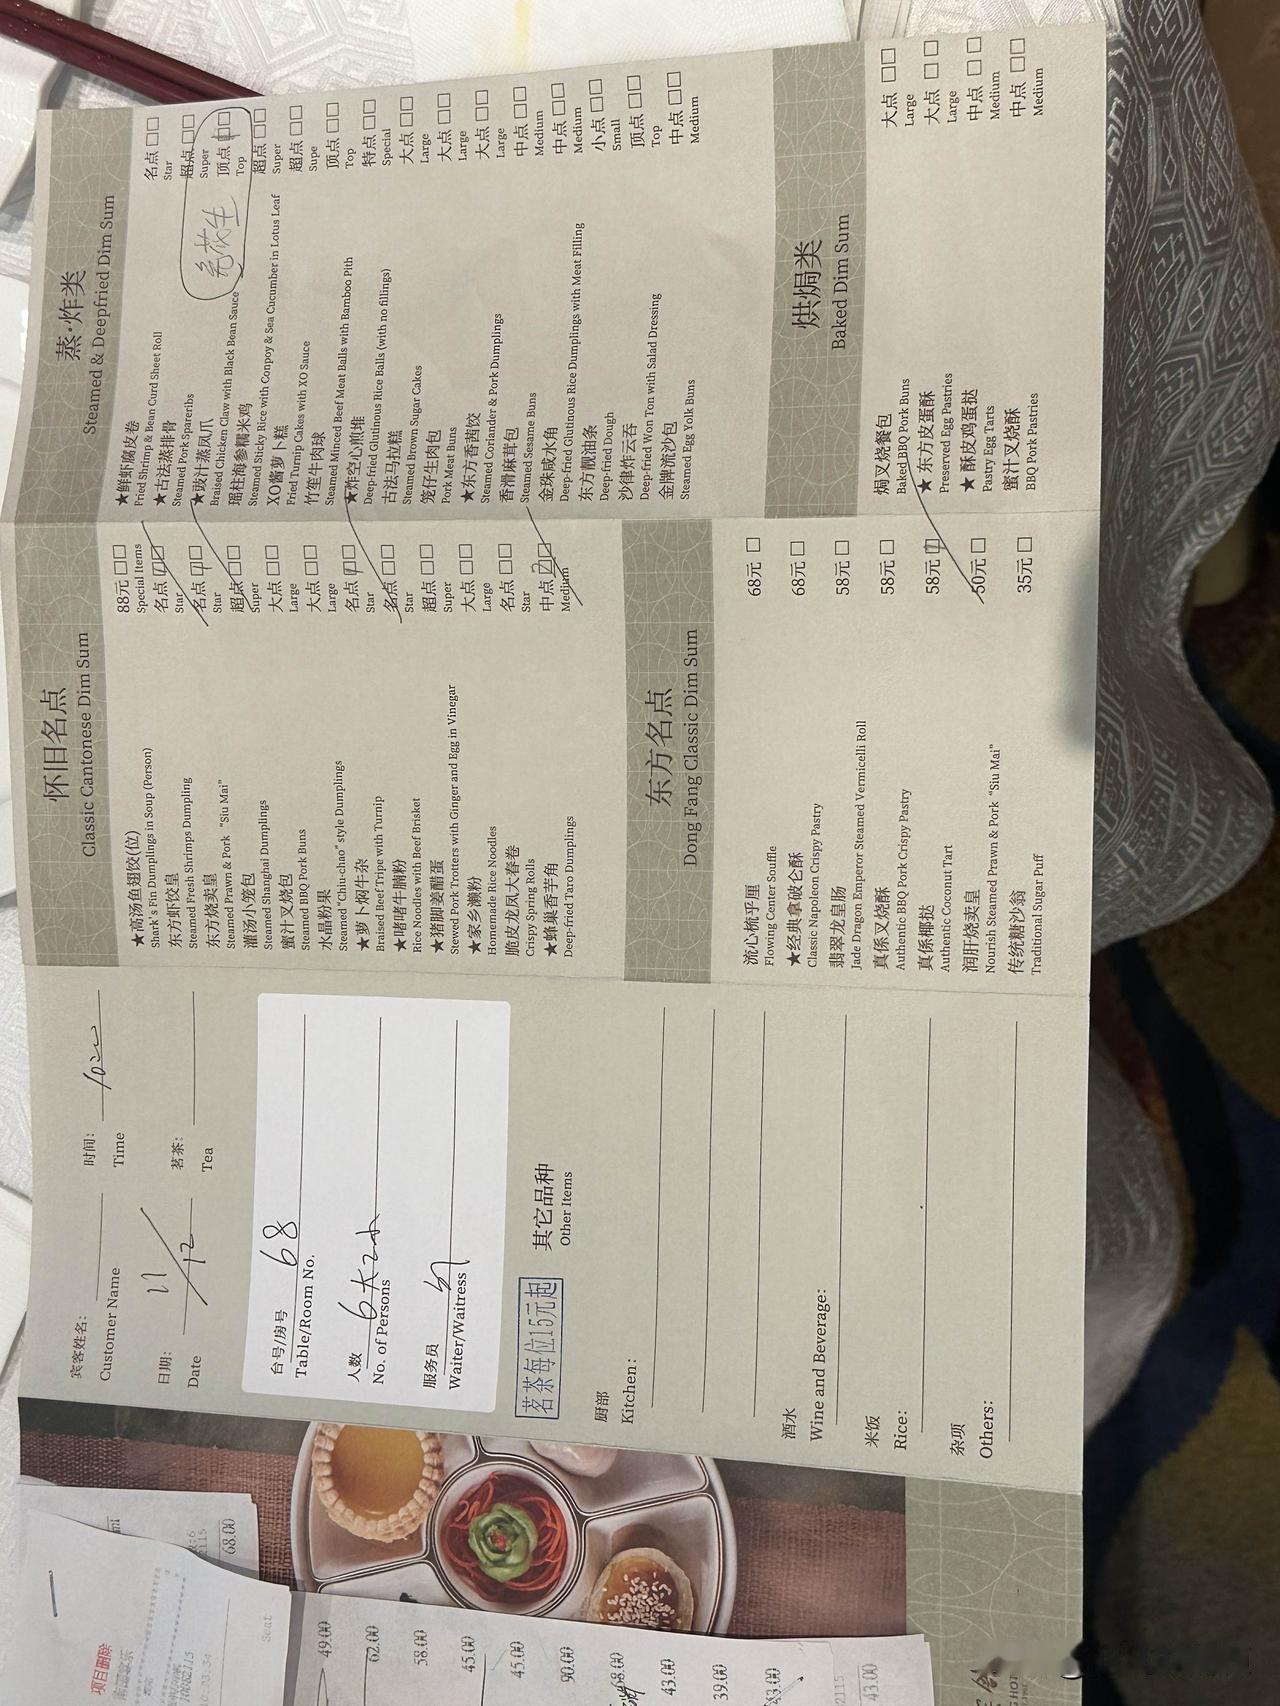 宾客姓名:
Customer Name
时间:
Time
日期:
Date
11/12
茗茶:
Tea
台号/房号 68
Table/Room No.
人数 6大2小
No. of Persons
服务员
Waiter/Waitress
茗茶每位15元起
其它品种
Other Items
厨部
Kitchen:
酒水
Wine and Beverage:
米饭
Rice:
杂项
Others:
怀旧名点
Classic Cantonese Dim Sum
★高汤鱼翅饺(位) 88元 □□
Shark's Fin Dumplings in Soup (Person) Special Items
东方虾饺皇 名点 □□
Steamed Fresh Shrimps Dumpling Star
东方烧卖皇 名点 □□
Steamed Prawn & Pork "Siu Mai" Star
灌汤小笼包 超点 □□
Steamed Shanghai Dumplings Super
蜜汁叉烧包 大点 □□
Steamed BBQ Pork Buns Large
水晶粉果 大点 □□
Steamed "Chiu-chao" style Dumplings Large
★萝卜焖牛杂 名点 □□
Braised Beef Tripe with Turnip Star
★啫啫牛腩粉 名点 □□
Rice Noodles with Beef Brisket Star
★猪脚姜醋蛋 超点 □□
Stewed Pork Trotters with Ginger and Egg in Vinegar Super
★家乡濑粉 大点 □□
Homemade Rice Noodles Large
脆皮龙凤大春卷 名点 □□
Crispy Spring Rolls Star
★蜂巢香芋角 中点 □□
Deep-fried Taro Dumplings Medium
东方名点
Dong Fang Classic Dim Sum
流心梳乎厘 68元 □
Flowing Center Souffle
★经典拿破仑酥 68元 □
Classic Napoleon Crispy Pastry
翡翠龙皇肠 58元 □
Jade Dragon Emperor Steamed Vermicelli Roll
真係叉烧酥 58元 □
Authentic BBQ Pork Crispy Pastry
真係椰挞 58元 □
Authentic Coconut Tart
润肝烧卖皇 50元 □
Nourish Steamed Prawn & Pork "Siu Mai"
传统糖沙翁 35元 □
Traditional Sugar Puff
蒸·炸类
Steamed & Deepfried Dim Sum
★鲜虾腐皮卷 名点 □□
Fried Shrimp & Bean Curd Sheet Roll Star
★古法蒸排骨 超点 □□
Steamed Pork Spareribs Super
★豉汁蒸凤爪 免花生 顶点 □□
Braised Chicken Claw with Black Bean Sauce Top
瑶柱海参糯米鸡 超点 □□
Steamed Sticky Rice with Conpoy & Sea Cucumber in Lotus Leaf Super
XO酱萝卜糕 超点 □□
Fried Turnip Cakes with XO Sauce Supe
竹笙牛肉球 顶点 □□
Steamed Minced Beef Meat Balls with Bamboo Pith Top
★炸空心煎堆 特点 □□
Deep-fried Glutinous Rice Balls (with no fillings) Special
古法马拉糕 大点 □□
Steamed Brown Sugar Cakes Large
笼仔生肉包 大点 □□
Pork Meat Buns Large
★东方香茜饺 大点 □□
Steamed Coriander & Pork Dumplings Large
香滑麻茸包 中点 □□
Steamed Sesame Buns Medium
金珠咸水角 中点 □□
Deep-fried Glutinous Rice Dumplings with Meat Filling Medium
东方靓油条 小点 □□
Deep-fried Dough Small
沙律炸云吞 顶点 □□
Deep-fried Won Ton with Salad Dressing Top
金牌流沙包 中点 □□
Steamed Egg Yolk Buns Medium
烘焗类
Baked Dim Sum
焗叉烧餐包 大点 □□
Baked BBQ Pork Buns Large
★东方皮蛋酥 大点 □□
Preserved Egg Pastries Large
★酥皮鸡蛋挞 中点 □□
Pastry Egg Tarts Medium
蜜汁叉烧酥 中点 □□
BBQ Pork Pastries Medium
项目删除
68.00
49.00
62.00
58.00
45.00
45.00
90.00
68.00
43.00
39.00
43.00
43.00